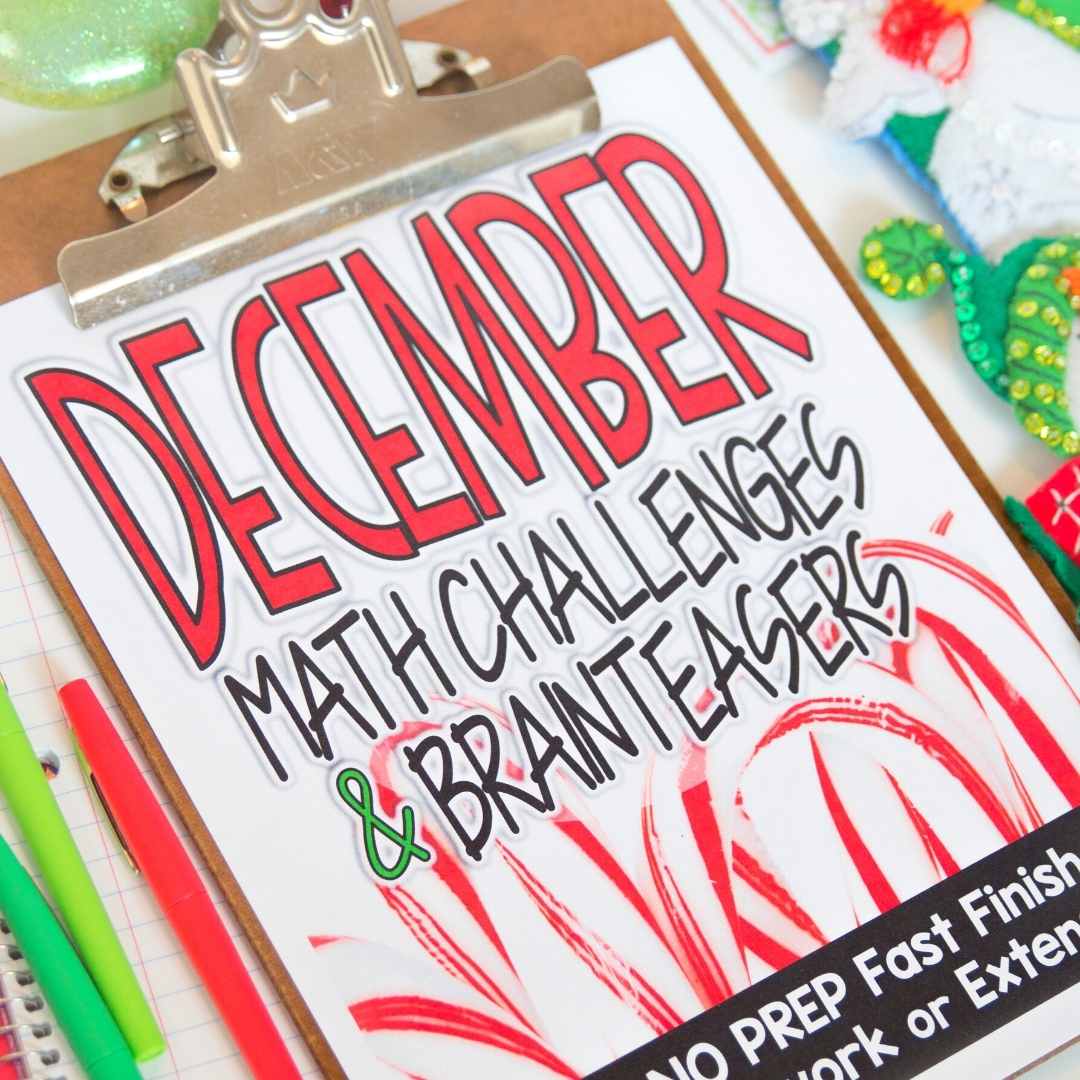 DECEMBER
MATH CHALLENGES
& BRAINTEASERS
NO PREP Fast Finish
work or Exten